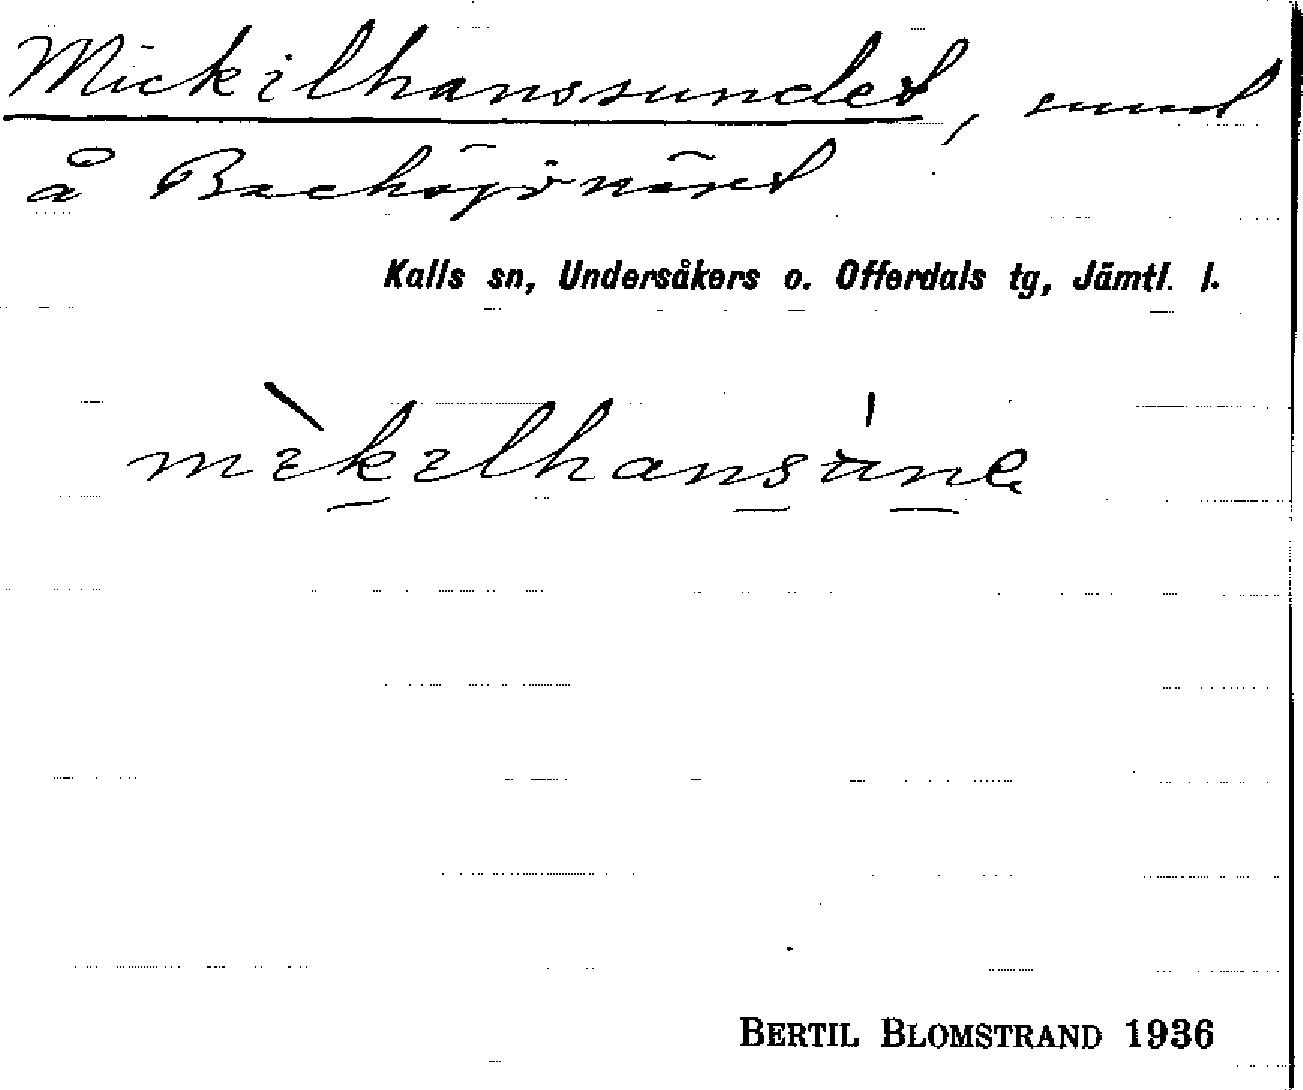 Mickilhanssundet, sund
å Backöjsnäset
Kalls sn, Undersåkers o. Offerdals tg, Jämtl. l.
mìkilhansúne
BERTIL BLOMSTRAND 1936